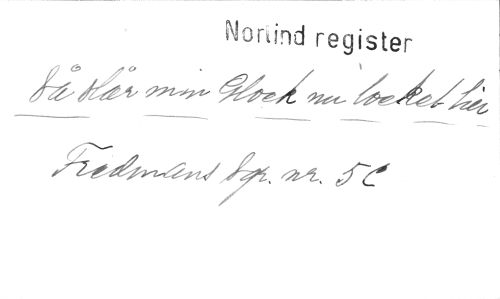 Norlind register
Så slår min Glock nu locket till
Fredmans Ep. nr. 5C